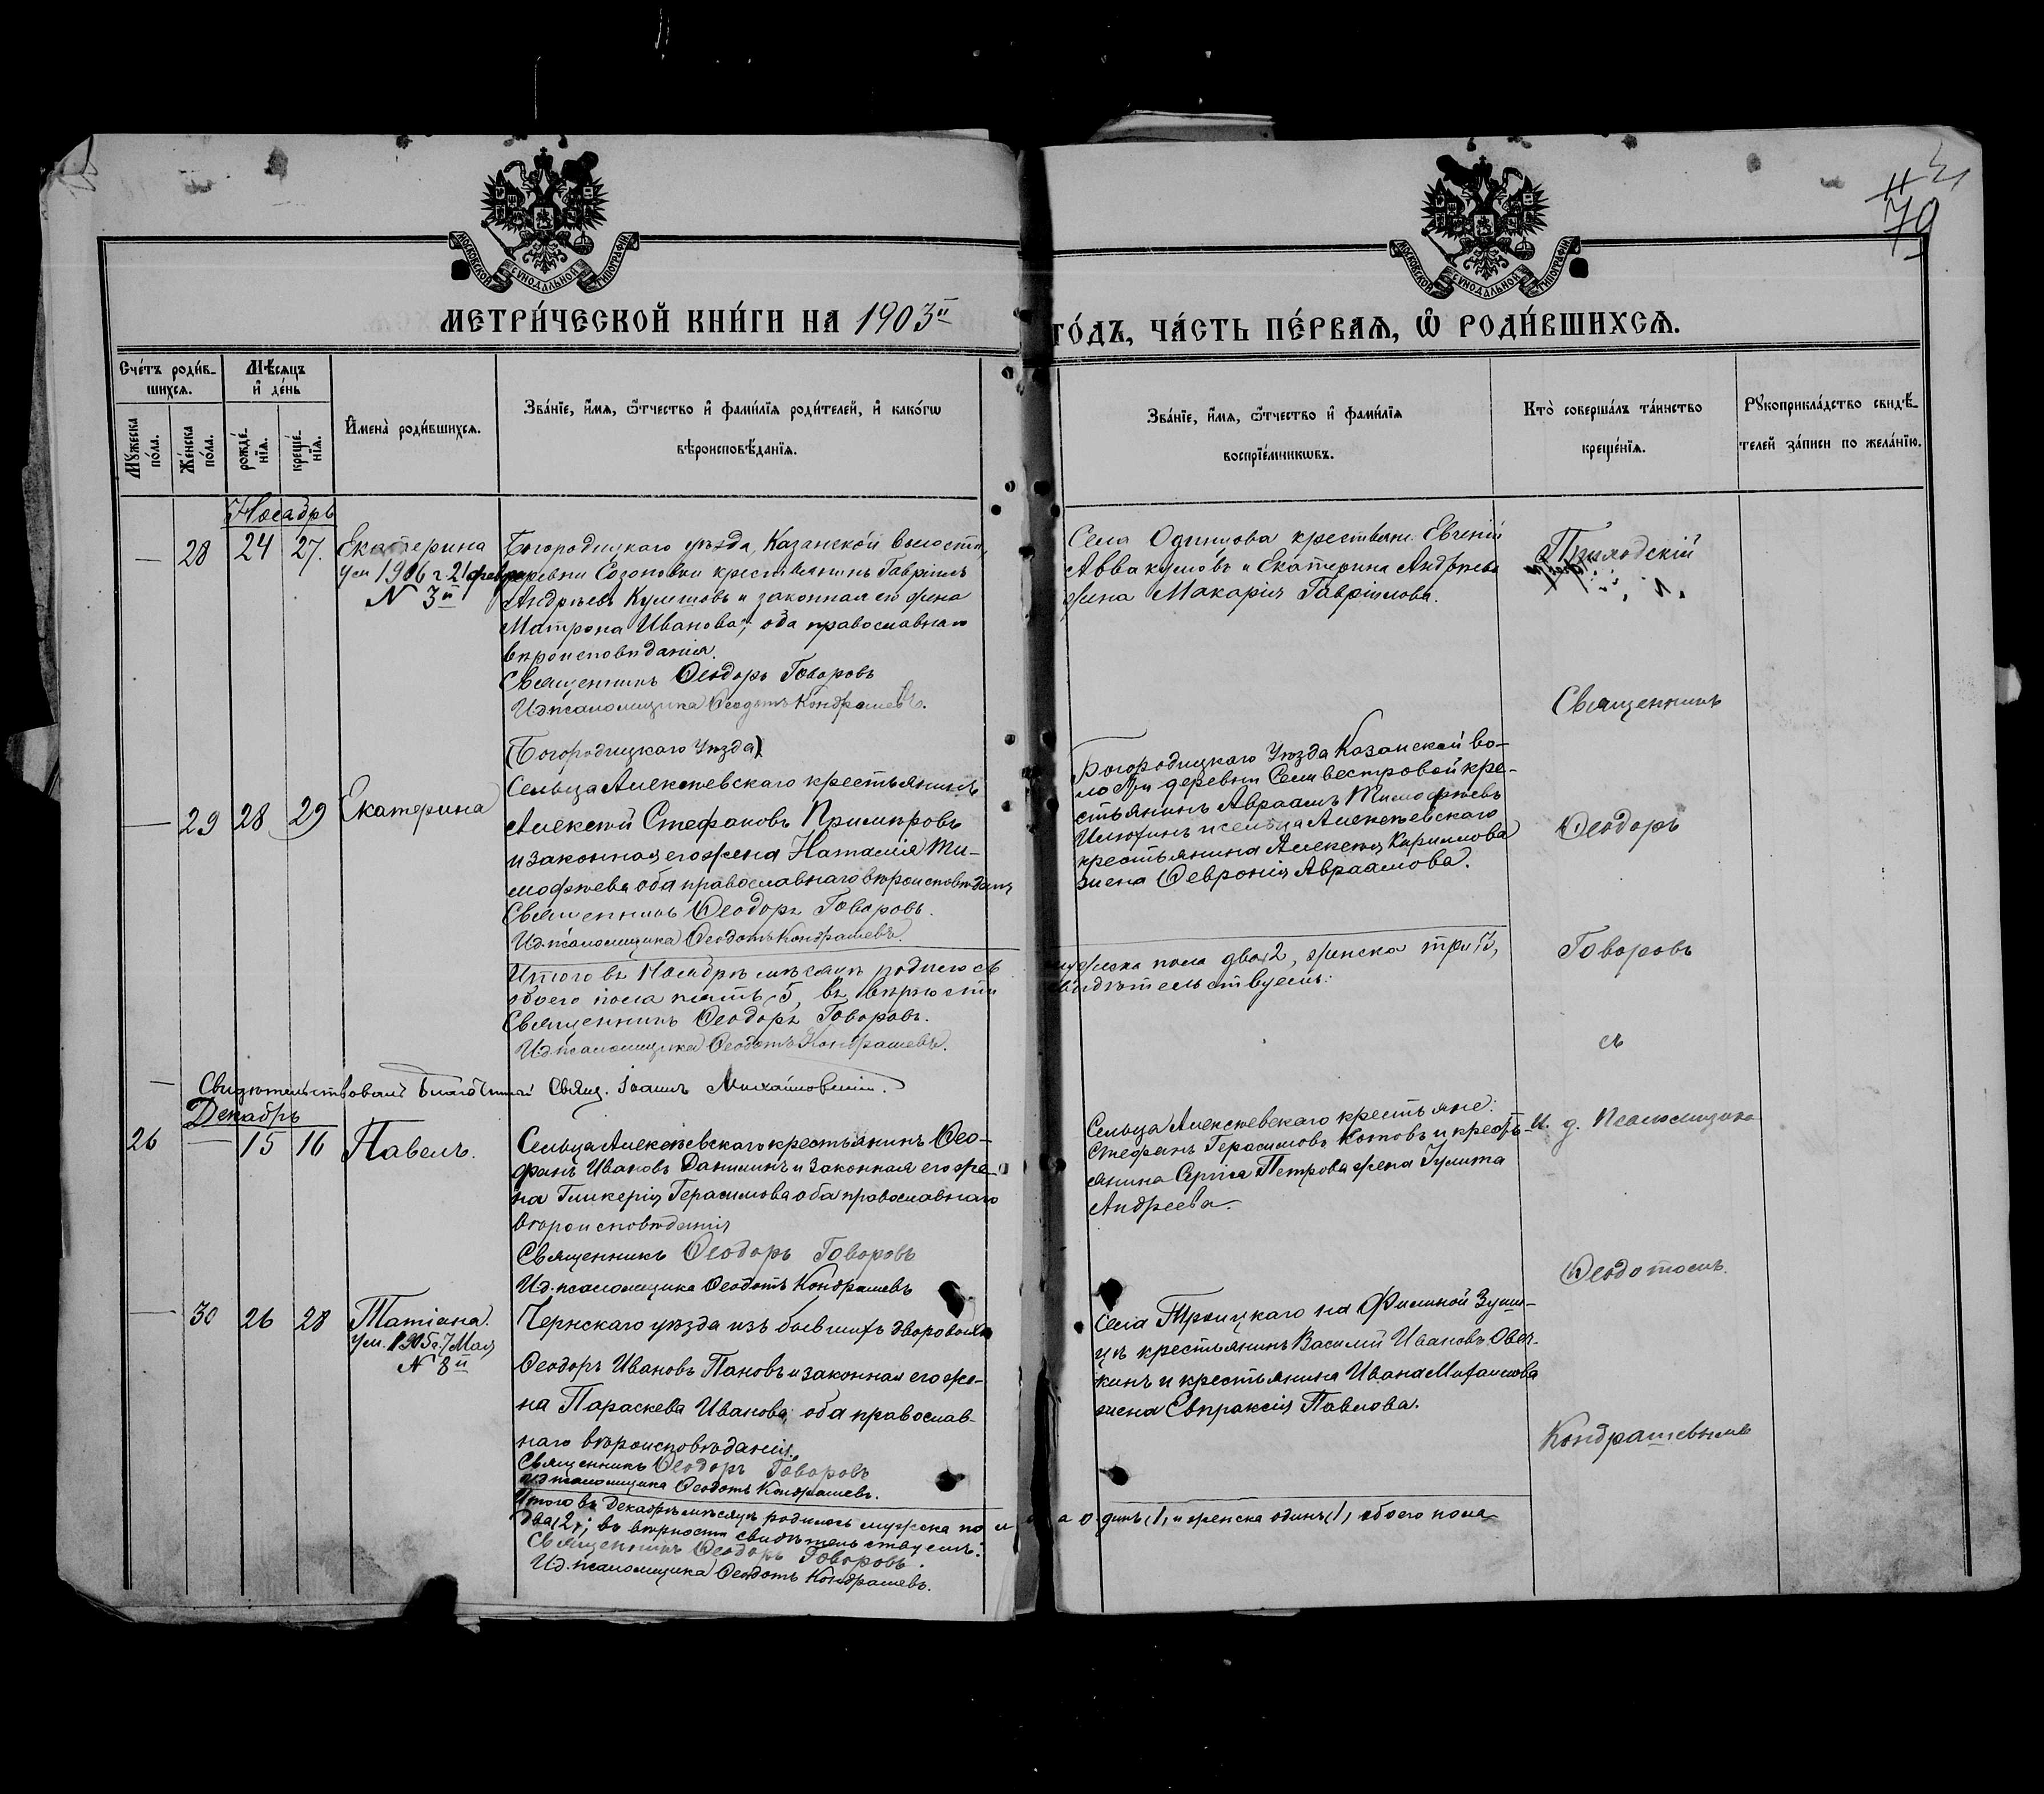 МОСКОВСКОЙ СѴНОДАЛЬНОЙ ТИПОГРАФІИ
МОСКОВСКОЙ СѴНОДАЛЬНОЙ ТИПОГРАФІИ
79
МЕТРИ́ЧЕСКОЙ КНИ́ГИ НА 1903й
ГО́ДЪ, ЧА́СТЬ ПЕ́РВАЯ, Ѿ РОДИ́ВШИХСЯ.
Сче́тъ роди́в-
шихся.
Мѣ́сяцъ
и҆ де́нь
Мꙋ́жеска
по́ла.
Же́нска
по́ла.
рожде́-
нїя.
креще́-
нїя.
И҆мена̀ роди́вшихся.
Зва́нїе, и҆́мя, ѻ҆́тчество и҆ фами́лїя роди́телей, и҆ како́гѡ
вѣроисповѣ́данїя.
Зва́нїе, и҆́мя, ѻ҆́тчество и҆ фами́лїя
воспрїе́мникѡвъ.
Кто̀ соверша́лъ та́инство
креще́нїя.
Рꙋкоприкла́дство свидѣ́-
телей за́писи по жела́нїю.
Ноябрь
— 28 24 27. Екатерина
Ум 1906 г 21 февр
N 3й
Богородицкаго уѣзда, Казанской волости,
деревни Созоновки крестьянинъ Гавріилъ
Андреевъ Кулешовъ и законная его жена
Матрона Иванова; оба православнаго
вѣроисповѣданія.
Священникъ Ѳеодоръ Говоровъ
И.д. псаломщика Ѳеодотъ Кондрашевъ.
Села крестьян. Евгеній
Аввакумовъ и Екатерина Андреева
жена Макарія Гавріилова.
Приходскій
Священникъ
(Богородицкаго Уѣзда)
— 29 28 29 Екатерина
Сельца Алексѣевскаго крестьянинъ
Алексѣй Стефановъ
и законная его жена Наталія Ти-
мофѣева оба православнаго вѣроисповѣданія
Священникъ Ѳеодоръ Говоровъ.
И.д. псаломщика Ѳеодотъ Кондрашевъ.
Богородицкаго Уѣзда Казанской во-
лости деревни Селивестровой кре-
стьянинъ Авраамъ Тимофѣевъ
Илюхинъ и сельца Алексѣевскаго
крестьянина Алексѣя Кириллова
жена Ѳевронія Авраамова.
Ѳеодоръ
Итого въ Ноябрѣ мѣсяцѣ родилось
мужеска пола два 2, женска три 3,
обоего пола пять 5, въ вѣрности
свидѣтельствуемъ:
Священникъ Ѳеодоръ Говоровъ.
И.д. псаломщика Ѳеодотъ Кондрашевъ.
Говоровъ
съ
— Свидѣтельствовалъ Благочинный Свящ. Іоаннъ
Декабрь
26 — 15 16 Павелъ.
Сельца Алексѣевскаго крестьянинъ Ѳео-
фанъ Ивановъ Данилинъ и законная его же-
на Гликерія Герасимова оба православнаго
вѣроисповѣданія
Священникъ Ѳеодоръ Говоровъ
И.д. псаломщика Ѳеодотъ Кондрашевъ
Сельца Алексѣевскаго крестьяне:
Стефанъ Герасимовъ Котовъ и кресть-
янина Сергія Петрова жена Іулита
Андреева.
И. д. Псаломщика
Ѳеодотомъ.
— 30 26 28 Татіана.
Ум. 1905 г. 7 Мая
N 8й
Чернскаго уѣзда изъ бывшихъ дворовыхъ
Ѳеодоръ Ивановъ Пановъ и законная его же-
на Параскева Иванова; оба православ-
наго вѣроисповѣданія.
Священникъ Ѳеодоръ Говоровъ
И.д. псаломщика Ѳеодотъ Кондрашевъ.
Села Троицкаго на Филиной Зуши-
цѣ крестьянинъ Василій Ивановъ Овеч-
кинъ и крестьянина Ивана Михаилова
жена Евпраксія Павлова.
Кондрашевымъ
Итого въ Декабрѣ мѣсяцѣ родилось мужеска пола одинъ (1, и женска одинъ (1, обоего пола
два (2,; въ вѣрности свидѣтельствуемъ:
Священникъ Ѳеодоръ Говоровъ.
И.д. псаломщика Ѳеодотъ Кондрашевъ.